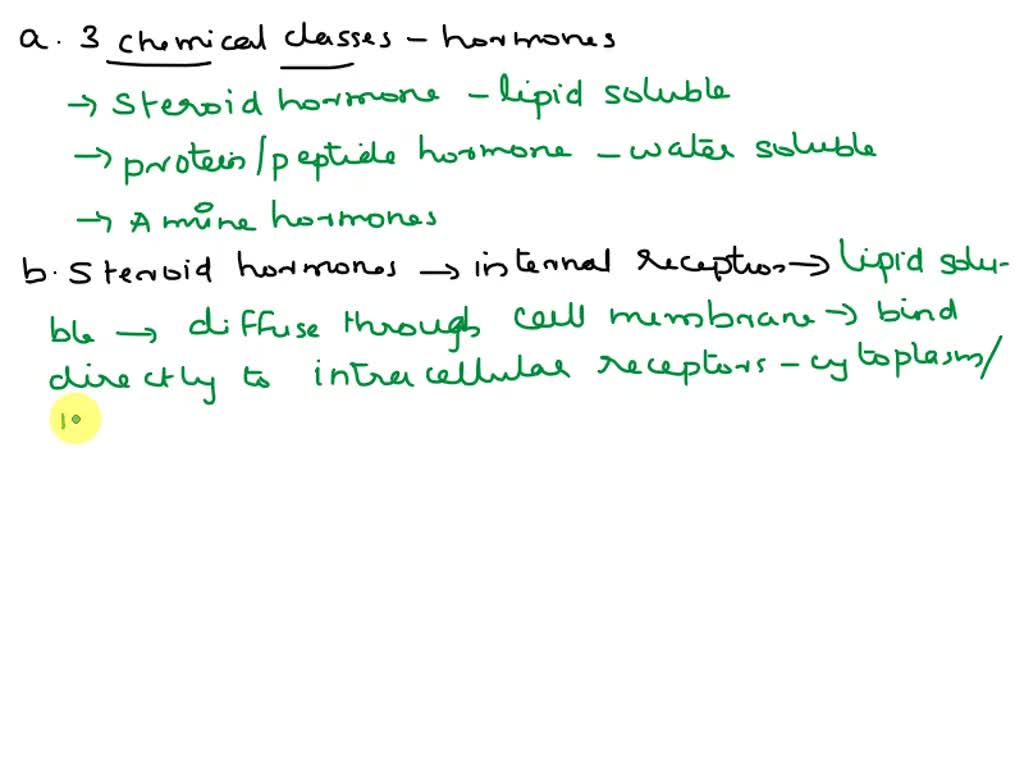 a. 3 chemical classes - hormones
→ Steroid hormone - lipid soluble
→ protein/peptide hormone - water soluble
→ Amine hormones
b. Steroid hormones → internal reception → lipid solu-
ble → diffuse through cell membrane → bind
directly to intracellular receptors - cytoplasm/